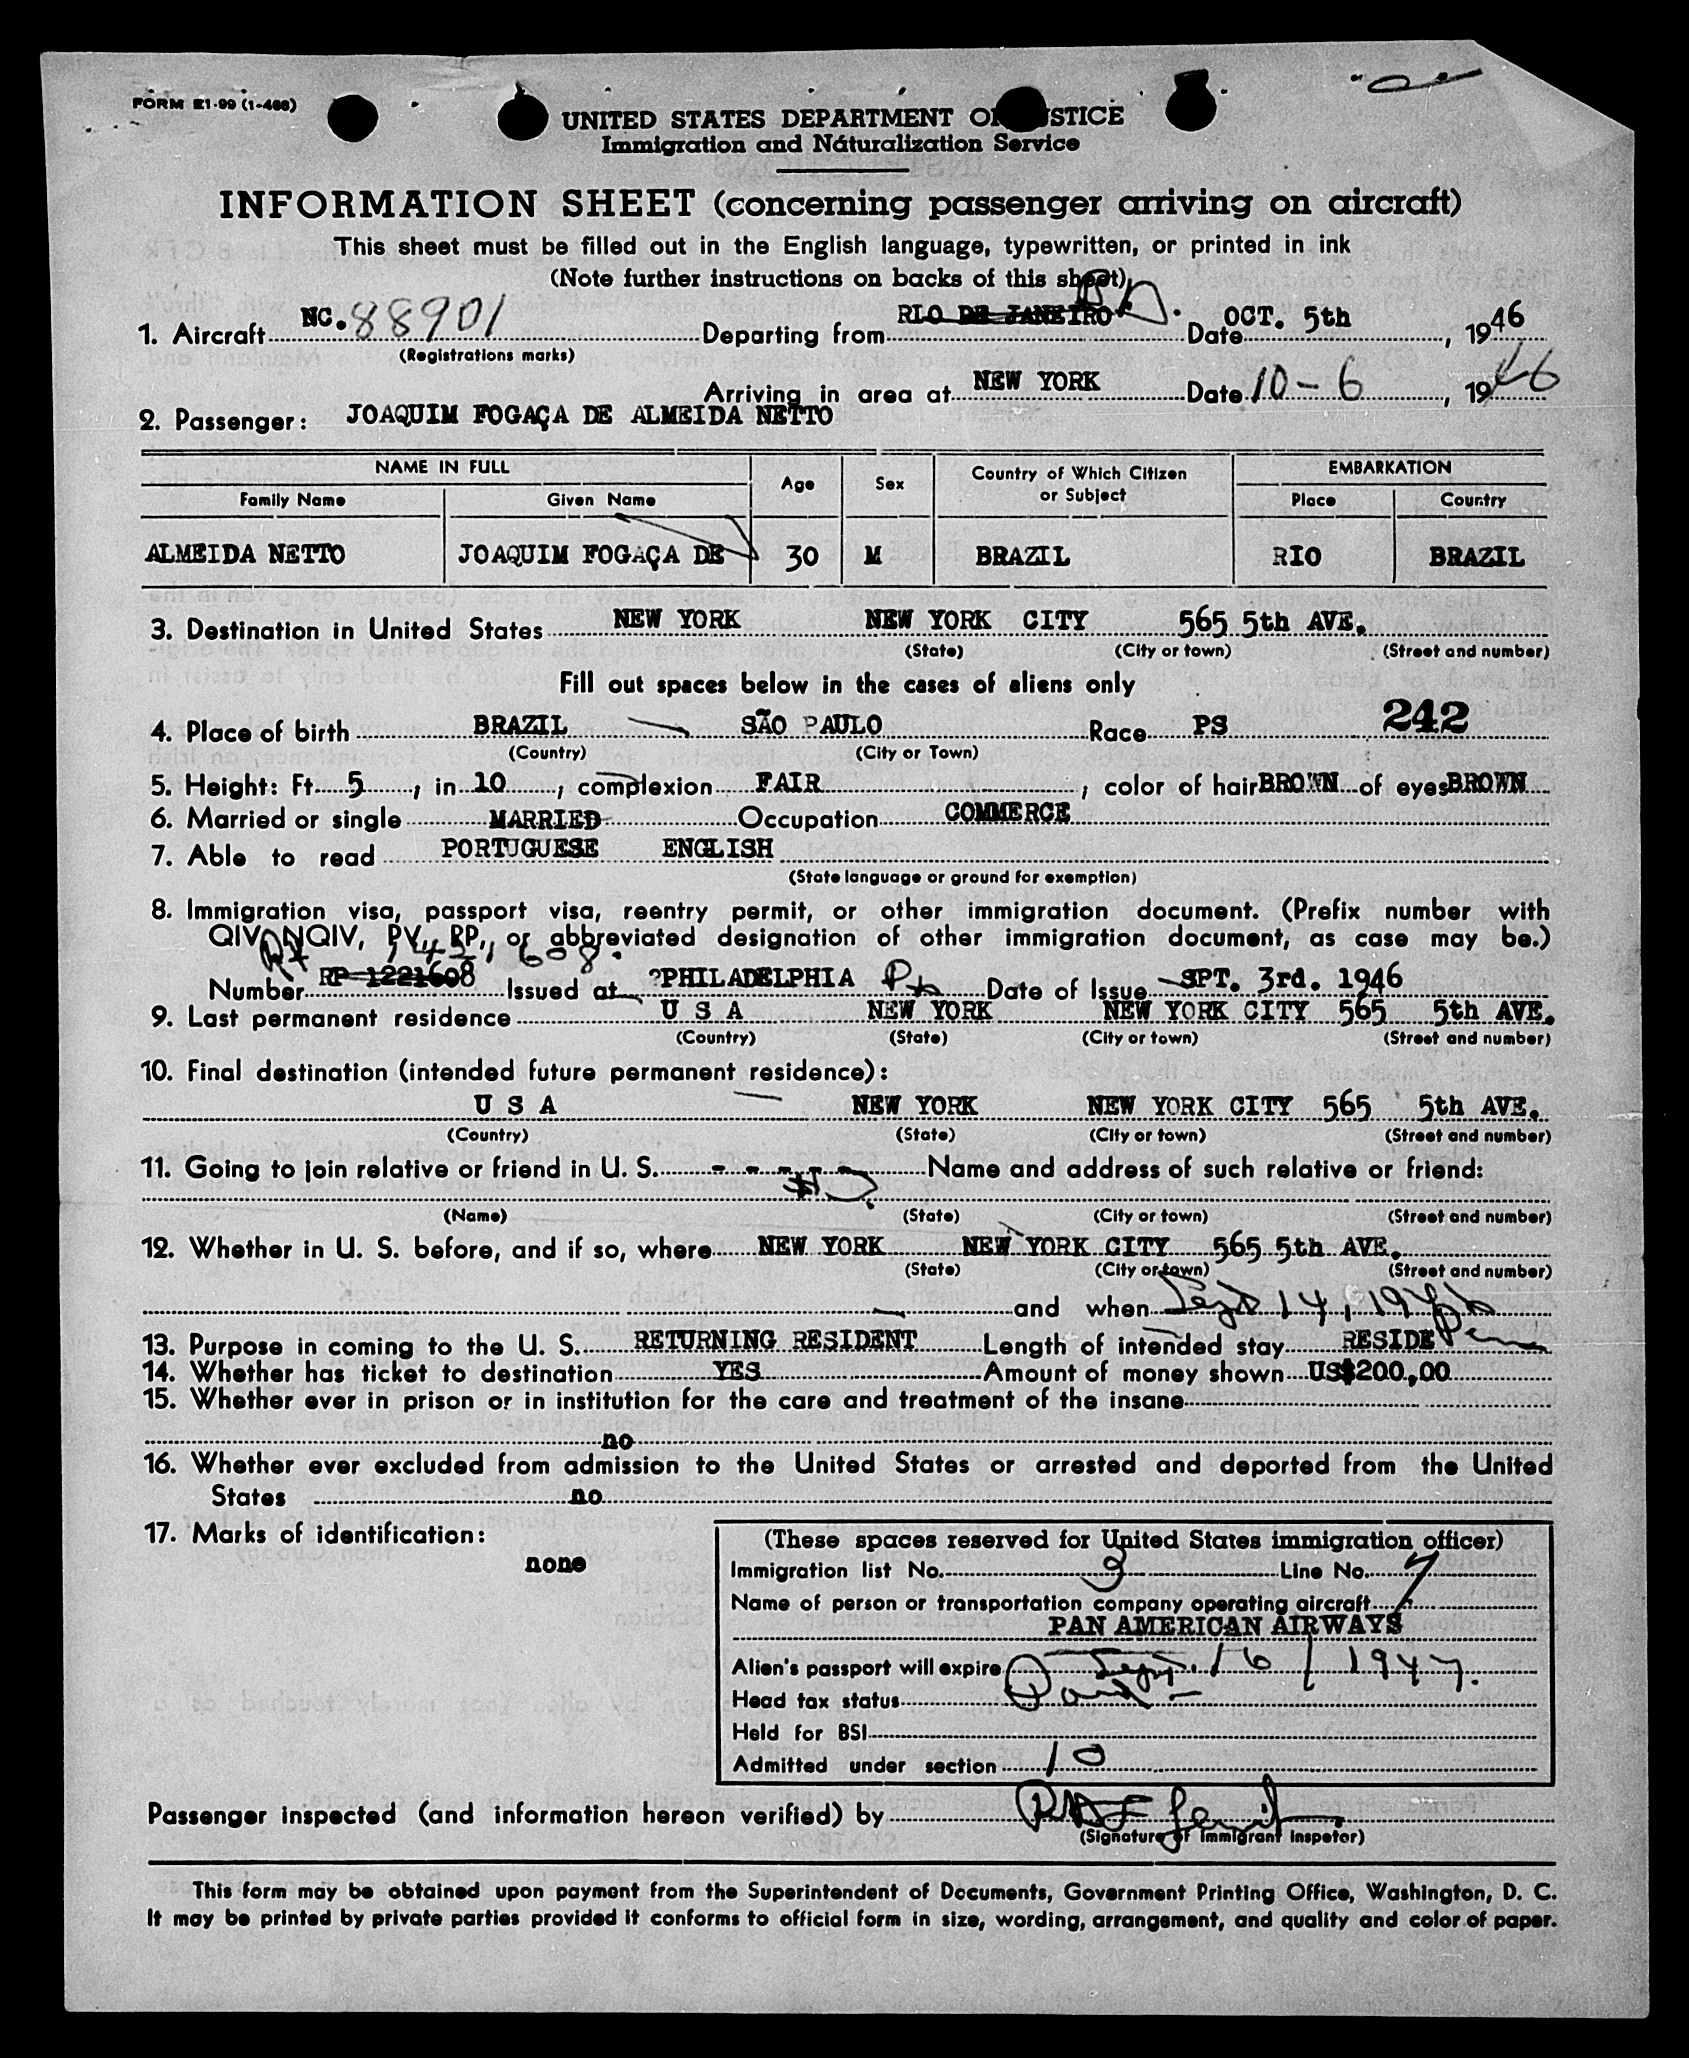 FORM I-99 (1-466)
UNITED STATES DEPARTMENT OF JUSTICE
Immigration and Naturalization Service
INFORMATION SHEET (concerning passenger arriving on aircraft)
This sheet must be filled out in the English language, typewritten, or printed in ink
(Note further instructions on backs of this sheet)
1. Aircraft NC. 88901 Departing from RIO DE JANEIRO Date OCT. 5th, 1946
(Registrations marks)
Arriving in area at NEW YORK Date 10-6, 1946
2. Passenger: JOAQUIM FOGAÇA DE ALMEIDA NETTO
NAME IN FULL Age Sex Country of Which Citizen or Subject EMBARKATION
Family Name Given Name Place Country
ALMEIDA NETTO JOAQUIM FOGAÇA DE 30 M BRAZIL RIO BRAZIL
3. Destination in United States NEW YORK NEW YORK CITY 565 5th AVE.
(State) (City or town) (Street and number)
Fill out spaces below in the cases of aliens only
4. Place of birth BRAZIL SÃO PAULO Race PS 242
(Country) (City or Town)
5. Height: Ft. 5, in 10, complexion FAIR; color of hair BROWN of eyes BROWN
6. Married or single MARRIED Occupation COMMERCE
7. Able to read PORTUGUESE ENGLISH
(State language or ground for exemption)
8. Immigration visa, passport visa, reentry permit, or other immigration document. (Prefix number with
QIV, NQIV, PV, RP, or abbreviated designation of other immigration document, as case may be.)
Number RP 1221608 Issued at PHILADELPHIA Date of Issue SPT. 3rd. 1946
9. Last permanent residence U S A NEW YORK NEW YORK CITY 565 5th AVE.
(Country) (State) (City or town) (Street and number)
10. Final destination (intended future permanent residence):
U S A NEW YORK NEW YORK CITY 565 5th AVE.
(Country) (State) (City or town) (Street and number)
11. Going to join relative or friend in U. S. - - - - - Name and address of such relative or friend:
(Name) (State) (City or town) (Street and number)
12. Whether in U. S. before, and if so, where NEW YORK NEW YORK CITY 565 5th AVE.
(State) (City or town) (Street and number)
and when Sept 14, 1946
13. Purpose in coming to the U. S. RETURNING RESIDENT Length of intended stay RESIDE Perm
14. Whether has ticket to destination YES Amount of money shown US$200,00
15. Whether ever in prison or in institution for the care and treatment of the insane
no
16. Whether ever excluded from admission to the United States or arrested and deported from the United
States no
17. Marks of identification:
none
(These spaces reserved for United States immigration officer)
Immigration list No. 9 Line No. 7
Name of person or transportation company operating aircraft
PAN AMERICAN AIRWAYS
Alien's passport will expire Sept. 16, 1947.
Head tax status
Held for BSI
Admitted under section 10
Passenger inspected (and information hereon verified) by
(Signature of Immigrant Inspetor)
This form may be obtained upon payment from the Superintendent of Documents, Government Printing Office, Washington, D. C.
It may be printed by private parties provided it conforms to official form in size, wording, arrangement, and quality and color of paper.